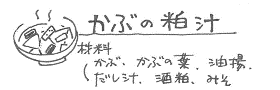 かぶの粕汁
材料
かぶ、かぶの葉、油揚、
だし汁、酒粕、みそ